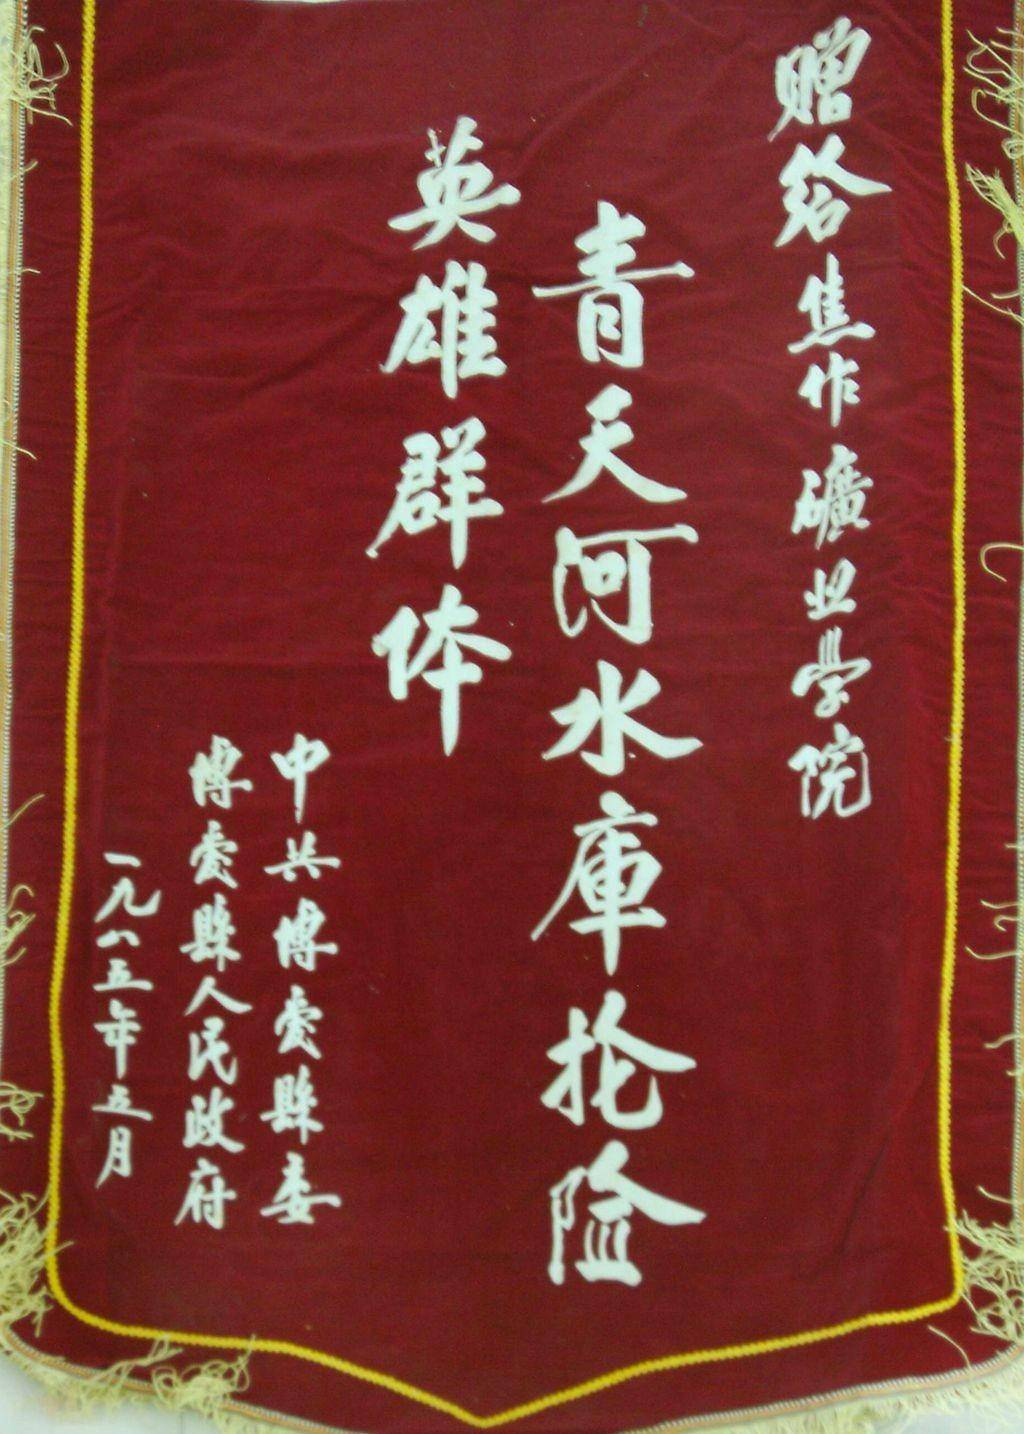 赠给焦作礦业学院
青天河水庫抢险
英雄群体
中共博爱縣委
博爱縣人民政府
一九八五年五月